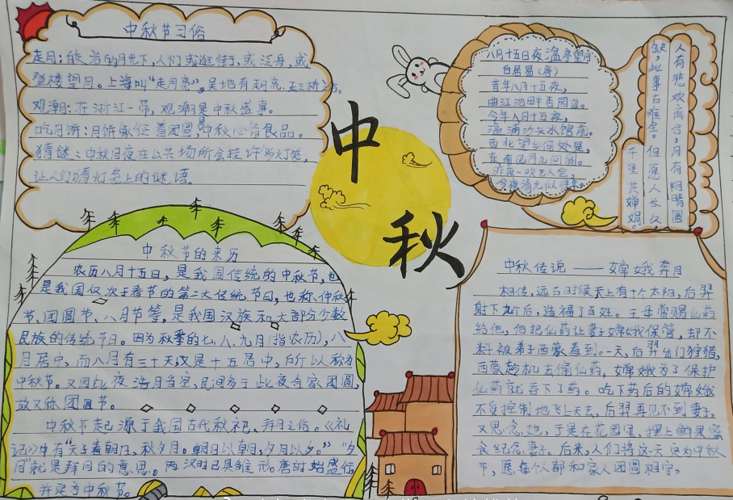 中秋节习俗
走月：皎洁的月光下，人们或逛街，或泛舟，或
登楼望月。上海叫“走月亮”，吴地有
观潮：在浙江一带，观潮是中秋盛事。
吃月饼：月饼象征着团圆，是中秋必备食品。
猜谜：中秋月夜在公共场所会挂许多灯笼，
让人们猜灯笼上的谜语
中
秋
八月十五日夜湓亭望月
白居易（唐）
昔年八月十五夜，
曲江池畔杏园边。
今年八月十五夜，
湓浦沙头水馆前。
西北望乡何处是，
东南见月几回圆。
昨夜一吹无人会，
今夜清光似往年。
人有悲欢离合，月有阴晴圆
缺，此事古难全。但愿人长久，
千里共婵娟。
中秋节的来历
农历八月十五日，是我国传统的中秋节，也
是我国仅次于春节的第二大传统节日，也称仲秋
节、团圆节、八月节等，是我国汉族和大部分少数
民族的传统节日。因为秋季的七、八、九月（指农历），八
月居中，而八月有三十天，又是十五居中，所以称为
中秋节。又因此夜浩月当空，民间多于此夜合家团圆，
故又称团圆节。
中秋节起源于我国古代秋祀、拜月之俗。《礼
记》中有“天子春朝日，秋夕月。朝日以朝，夕月以夕。”“夕
月”就是拜月的意思。两汉时已具雏形。唐时始盛俗
并定为中秋节。
中秋传说——嫦娥奔月
相传，远古时候天上有十个太阳，后羿
射下九后，造福了百姓。王母赏赐仙药
给他，他把仙药让妻子嫦娥保管，却不
料被弟子西蒙看到。一天，后羿出门狩猎，
西蒙趁机去偷仙药，嫦娥为了保护
仙药就吞下了药。吃下药后的嫦娥
不受控制地飞上天去，后羿再见不到妻子，
又思念她，于是在花园里，摆上鲜果蜜
食纪念妻子。后来，人们将这一天定为中秋
节，愿每个人都和家人团圆相守。